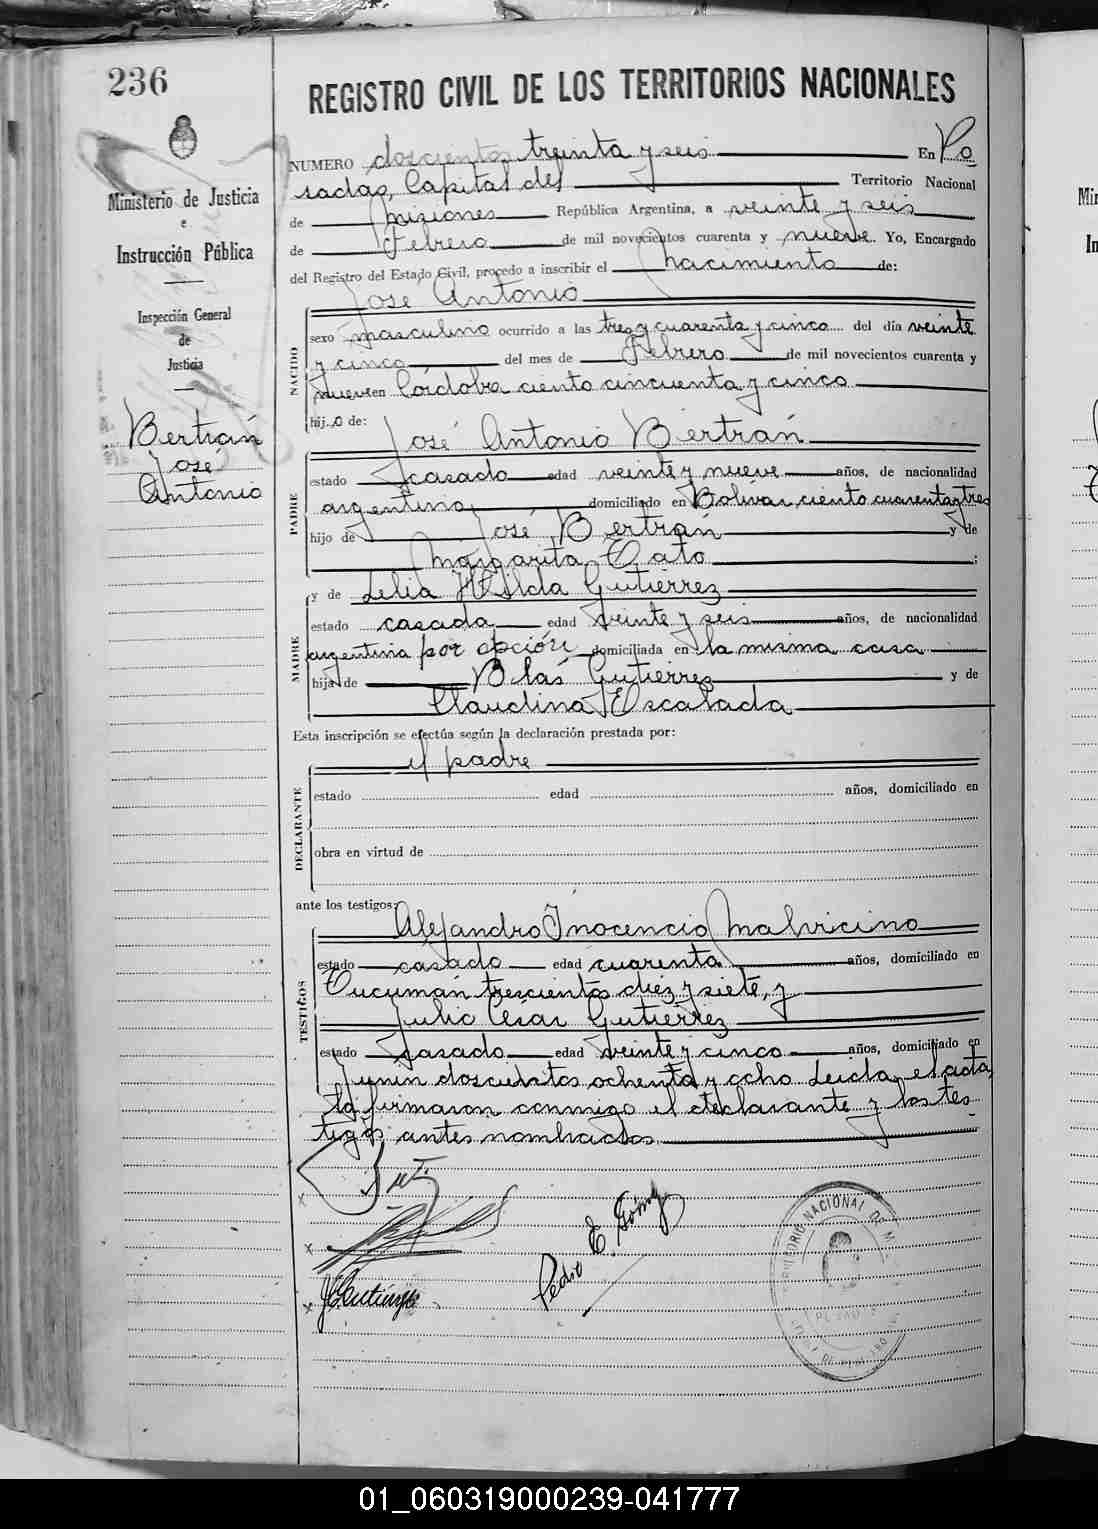 236
REGISTRO CIVIL DE LOS TERRITORIOS NACIONALES
Ministerio de Justicia
e
Instrucción Pública
Inspección General
de
Justicia
Bertrán
José
Antonio
NUMERO doscientos treinta y seis En Po
sadas, Capital del Territorio Nacional
de Misiones República Argentina, a veinte y seis
de Febrero de mil novecientos cuarenta y nueve. Yo, Encargado
del Registro del Estado Civil, procedo a inscribir el nacimiento de:
José Antonio
NACIDO
sexo masculino ocurrido a las tres y cuarenta y cinco del día veinte
y cinco del mes de Febrero de mil novecientos cuarenta y
nueve en Córdoba ciento cincuenta y cinco
hij..o de:
José Antonio Bertrán
PADRE
estado casado edad veinte y nueve años, de nacionalidad
argentina domiciliado en Bolívar ciento cuarenta y tres
hijo de José Bertrán y de
Margarita Cato;
MADRE
y de Lelia Hilda Gutiérrez
estado casada edad veinte y seis años, de nacionalidad
argentina por opción domiciliada en la misma casa
hija de Blás Gutiérres y de
Claudina Escalada
Esta inscripción se efectúa según la declaración prestada por:
el padre
DECLARANTE
estado edad años, domiciliado en
obra en virtud de
ante los testigos:
TESTIGOS
Alejandro Inocencio Malvicino
estado casado edad cuarenta años, domiciliado en
Tucumán trescientos diez y siete, y
Julio César Gutiérrez
estado casado edad veinte y cinco años, domiciliado en
Junín doscientos ochenta y ocho Leida el acta,
la firmaron conmigo el declarante y los tes-
tigos antes nombrados.
x
x
x JCGutiérrez
Pedro E. Gómez
NACIONAL DE M
01_060319000239-041777